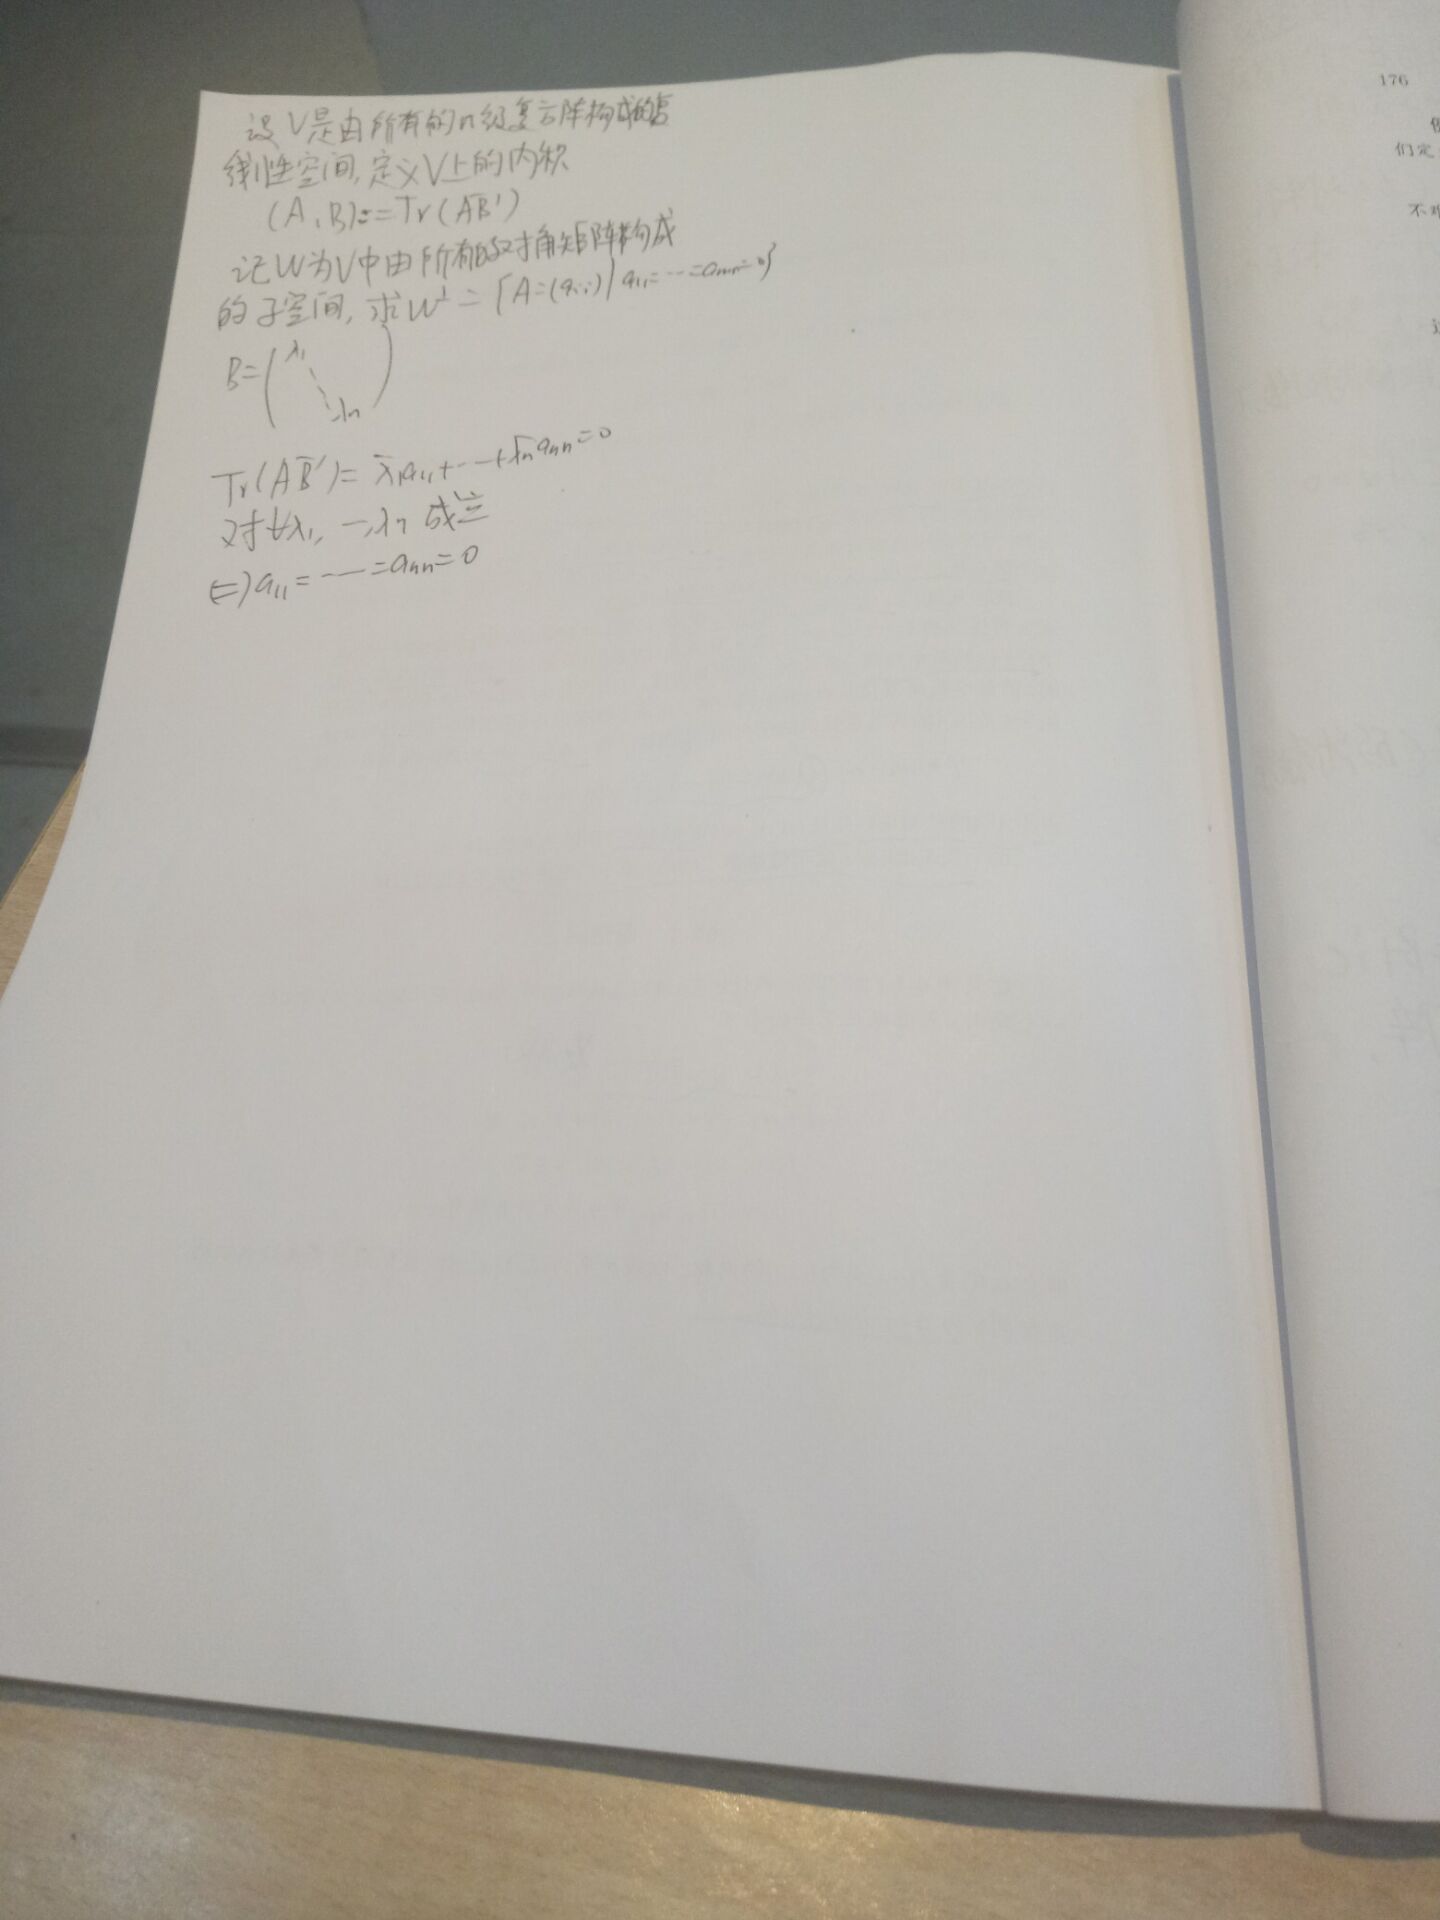 设V是由所有的n级复方阵构成的复
线性空间,定义V上的内积
(A,B):=Tr(AB̅')
记W为V中由所有的对角矩阵构成
的子空间,求W^⊥={A=(a_ij)|a₁₁=…=a_nn=0}
B=(λ₁ ⋱ λn)
Tr(AB̅')=λ̅₁a₁₁+…+λ̅na_nn=0
对∀λ₁,…,λn成立
⇔a₁₁=…=a_nn=0
176
们定